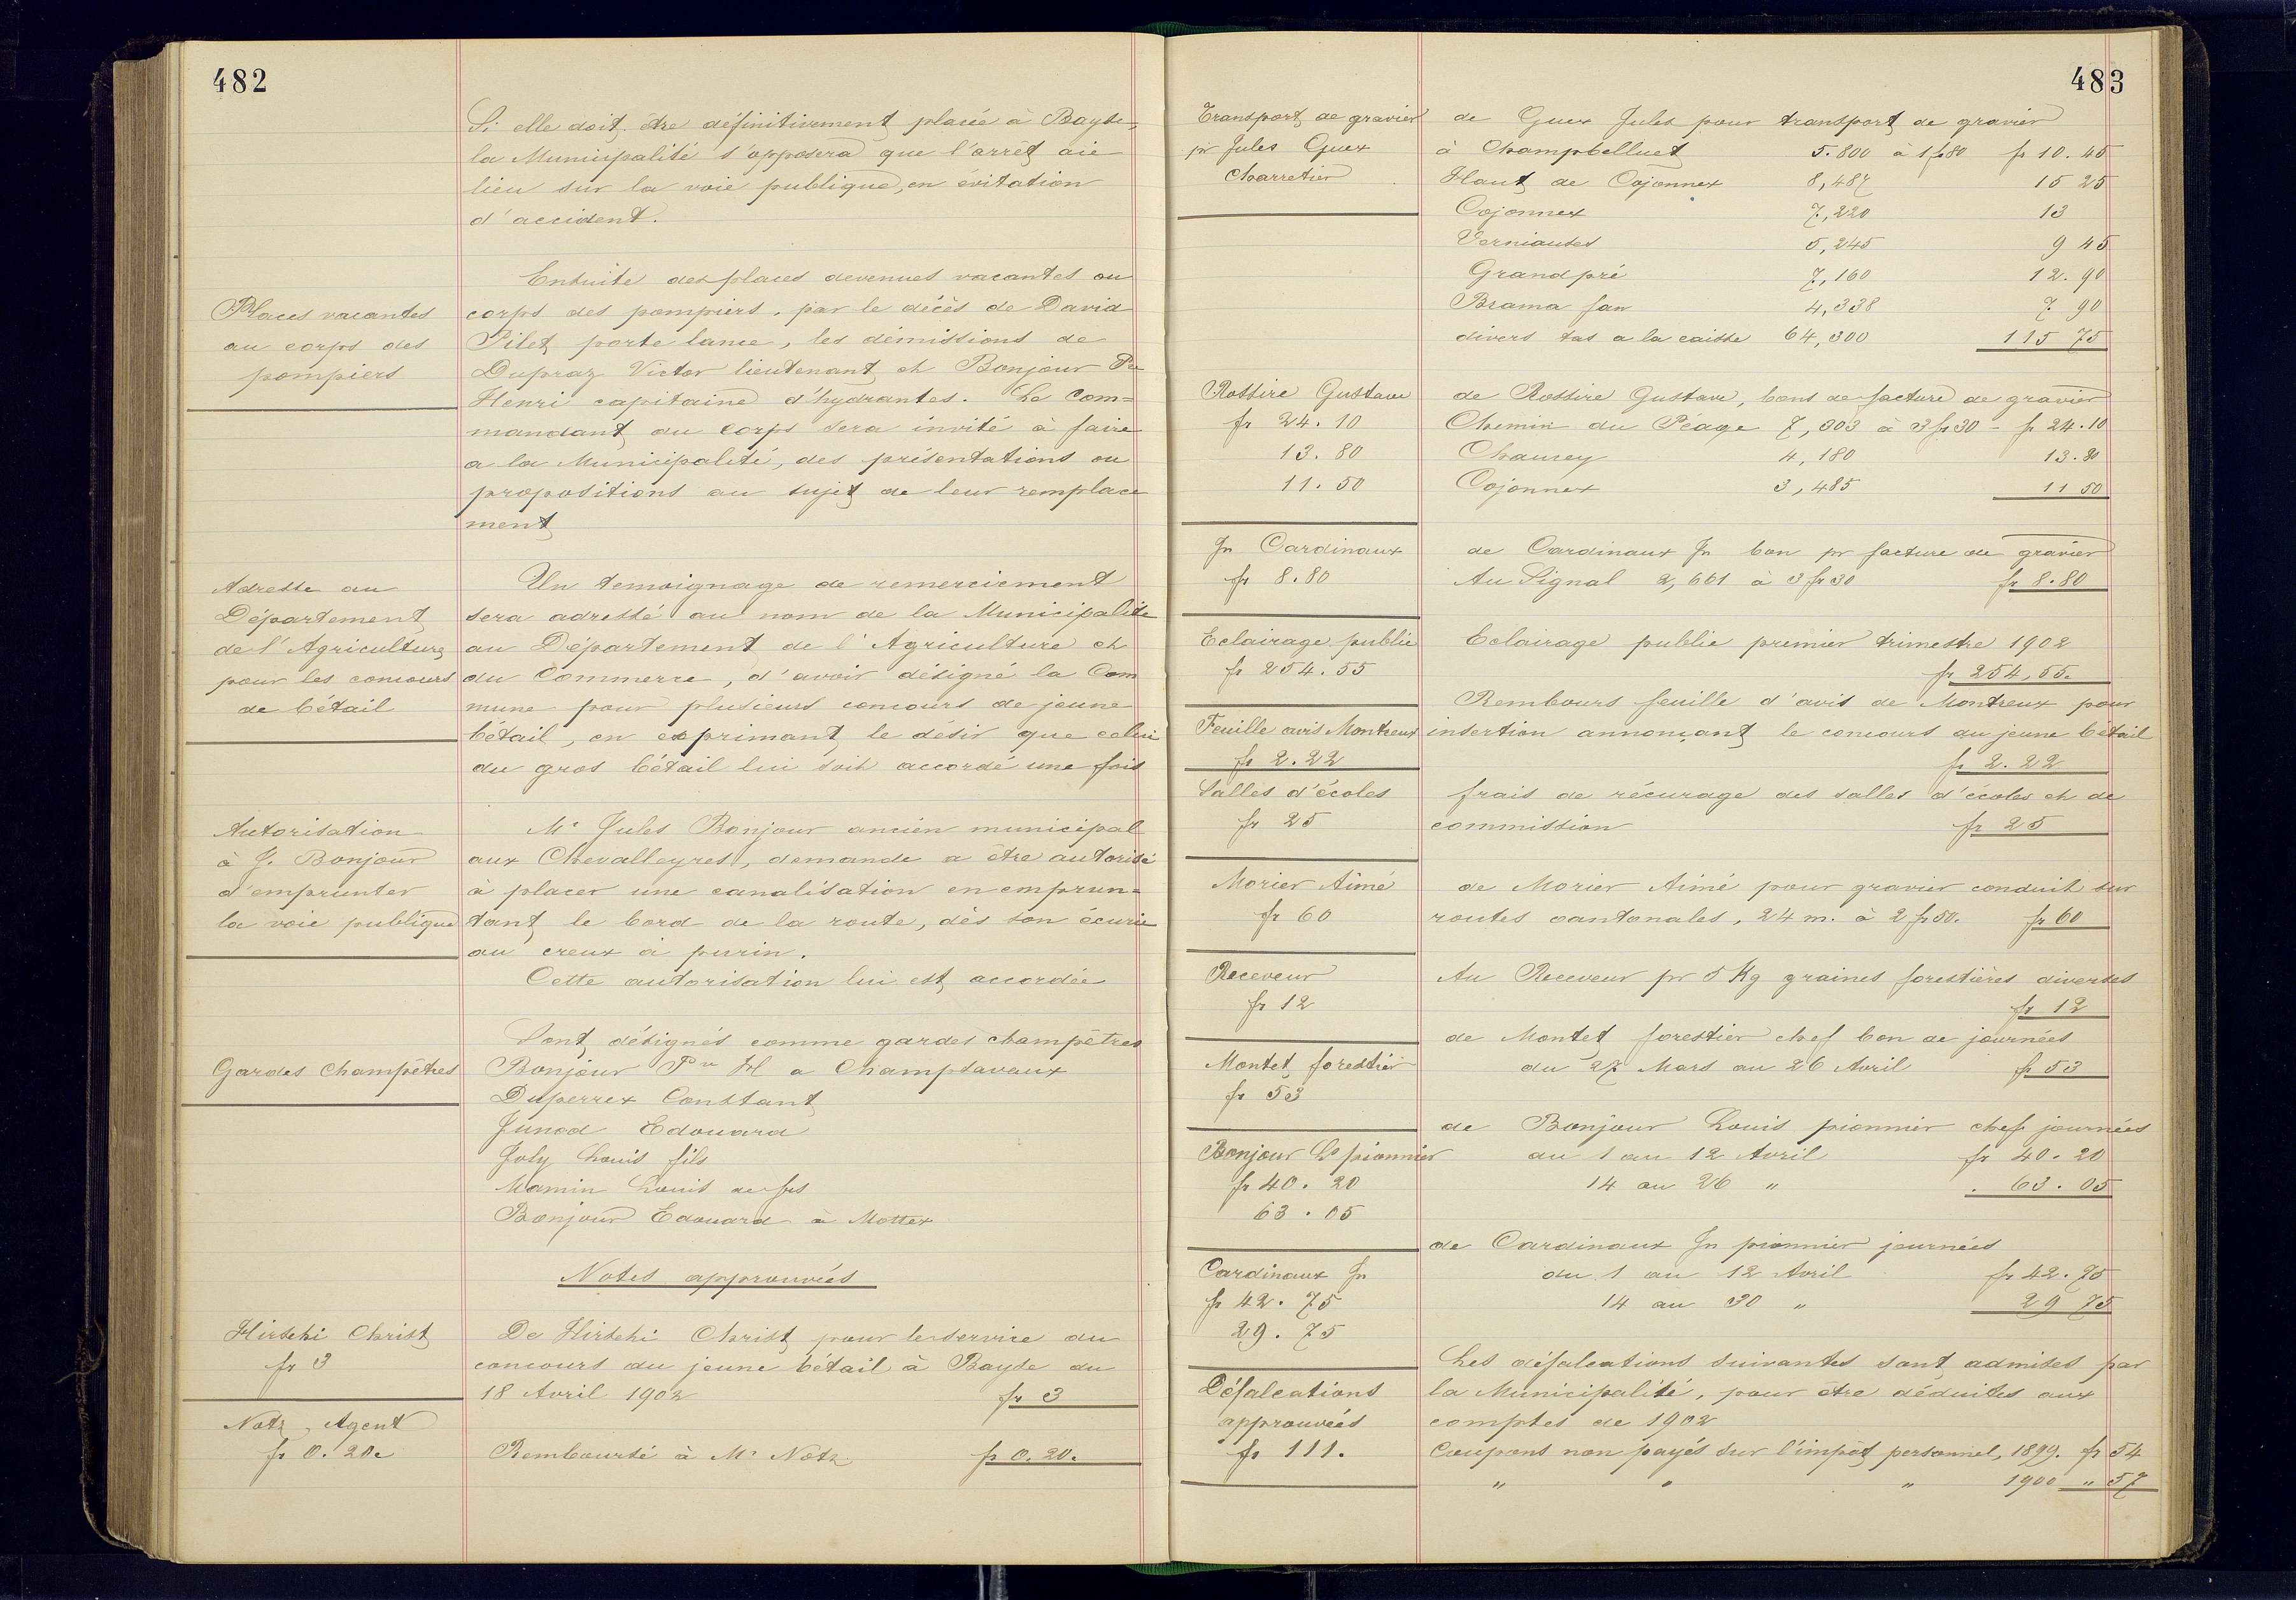 482
Si elle doit être définitivement placée à Bayse-
la Municipalité s'opposera que l'arrêt aie
lieu sur la voie publique, en évitation
d'accident.
Places vacantes
au corps des
pompiers
Ensuite des places devenues vacantes au
corps des pompiers, par le décès de David
Pilet porte lance, les démissions de
Dupraz Victor lieutenant et Bonjour Pre
Henri capitaine d'hydrantes. Le Com=
mandant du corps sera invité à faire
a la Municipalité, des présentations ou
propositions au sujet de leur remplace
ment
Adresse au
Département
de l'Agriculture
pour les concours
de bétail
Un temoignage de remerciement
sera adressé au nom de la Municipalité
au Département de l'Agriculture et
du Commerce, d'avoir désigné la Com
mune pour plusieurs concours de jeune
bétail, en exprimant le désir que celui
du gros bétail lui soit accordé une fois
Autorisation
à J. Bonjour
d'emprunter
la voie publique
Mr Jules Bonjour ancien municipal
aux Chevalleyres, demande a être autorisé
à placer une canalisation en emprun=
tant le bord de la route, dès son écurie
au creux à purin.
Cette autorisation lui est accordée
Gardes Champêtres
Sont désignés comme gardes champêtres
Bonjour Pre H a Champsavaux
Duperrex Constant
Junod Edouard
Joly Louis fils
Mamin Louis de fs
Bonjour Edouard à Mottex
Notes approuvées
Hirschi Christ
fr 3
De Hirschi Christ pour le service du
concours du jeune bétail à Bayse du
18 Avril 1902 fr 3
Notz, Agent
fr 0.20c
Remboursé à Mr Notz fr 0.20.
483
Transport de gravier
pr Jules Guex
Charretier
de Guex Jules pour transport de gravier
à Champbelluet 5.800 à 1 fr 80 fr 10.45
Haut de Cojonnex 8,487 15 25
Cojonnex 7,220 13
Verniaules 5,245 9 45
Grand pré 7,160 12.90
Brama fan 4,338 7 90
divers tas a la caisse 64,300 115 75
Rossire Gustave
fr 24.10
13.80
11.50
de Rossire Gustave, bons de facture de gravier
Chemin du Péage 7,303 à 3 fr 30 - fr 24.10
Chaucey 4,180 13.80
Cojonnex 3,485 11 50
Jn Cardinaux
fr 8.80
de Cardinaux Jn bon pr facture de gravier
Au Signal 2,661 à 3 fr 30 fr 8.80
Eclairage public
fr 254.55
Eclairage public premier trimestre 1902
fr 254,55.
Feuille avis Montreux
fr 2.22
Rembours feuille d'avis de Montreux pour
insertion annonçant le concours du jeune bétail
fr 2.22
Salles d'écoles
fr 25
frais de récurage des salles d'écoles et de
commission fr 25
Morier Aimé
fr 60
de Morier Aimé pour gravier conduit sur
routes cantonales, 24 m. à 2 fr 50. fr 60
Receveur
fr 12
Au Receveur pr 5 Kg graines forestières diverses
fr 12
Montet forestier
fr 53
de Montet forestier chef bon de journées
du 27 Mars au 26 Avril fr 53
Bonjour Ls pionnier
fr 40.20
63.05
de Bonjour Louis pionnier chef journées
du 1 au 12 Avril fr 40.20
14 au 26 " 63.05
Cardinaux Jn
fr 42.75
29.75
de Cardinaux Jn pionnier journées
du 1 au 12 Avril fr 42.75
14 au 30 " 29 75
Défalcations
approuvées
fr 111.
Les défalcations suivantes sont admises par
la Municipalité, pour être déduites aux
comptes de 1902
Coupons non payés sur l'impôt personnel, 1899. fr 54
" " " 1900 " 57